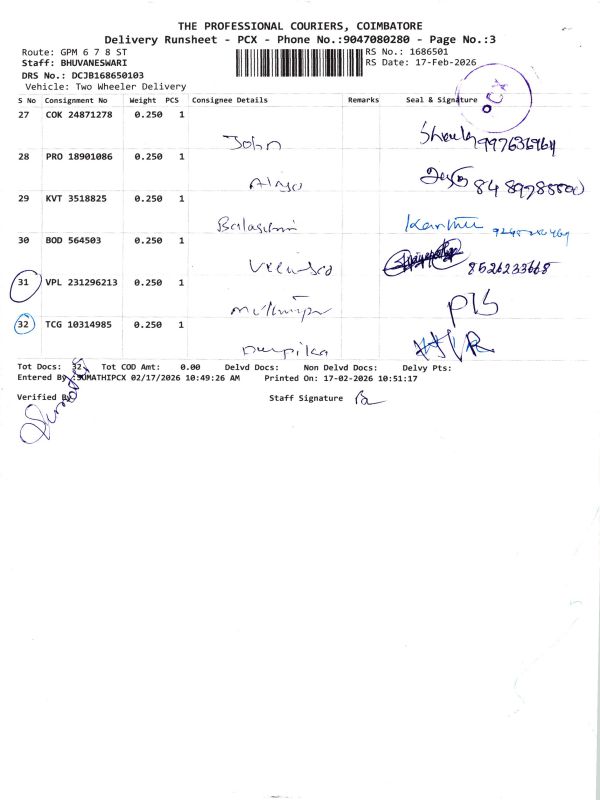 THE PROFESSIONAL COURIERS, COIMBATORE
Delivery Runsheet - PCX - Phone No.:9047080280 - Page No.:3
Route: GPM 6 7 8 ST
RS No.: 1686501
Staff: BHUVANESWARI
RS Date: 17-Feb-2026
DRS No.: DCJB168650103
Vehicle: Two Wheeler Delivery
PCX
S No Consignment No Weight PCS Consignee Details Remarks Seal & Signature
27 COK 24871278 0.250 1
John
28 PRO 18901086 0.250 1
29 KVT 3518825 0.250 1
30 BOD 564503 0.250 1
8526233668
31 VPL 231296213 0.250 1
32 TCG 10314985 0.250 1
Deepika
Tot Docs: 32 Tot COD Amt: 0.00 Delvd Docs: Non Delvd Docs: Delvy Pts:
Entered By :SUMATHIPCX 02/17/2026 10:49:26 AM Printed On: 17-02-2026 10:51:17
Verified By Staff Signature